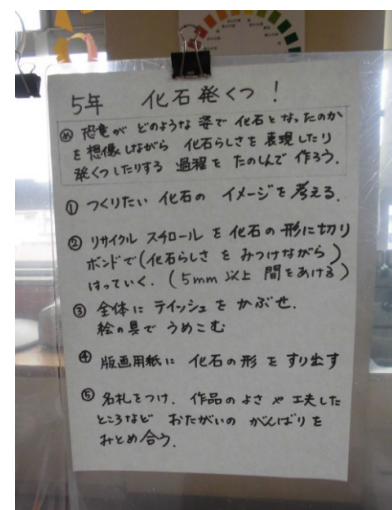 5年 化石発くつ！
め 恐竜が どのような 姿で 化石と なったのか
を 想像しながら 化石らしさを 表現したり
発くつしたりする 過程を たのしんで 作ろう.
① つくりたい 化石の イメージを 考える.
② リサイクル スチロールを 化石の 形に切り
ボンドで(化石らしさ を みつけながら)
はっていく. (5mm 以上 間をあける)
③ 全体に ティッシュを かぶせ.
絵の具で うめこむ
④ 版画用紙に 化石の形 を すり出す
⑤ 名札をつけ. 作品のよさ や 工夫した
ところなど おたがいの がんばりを
みとめ合う.